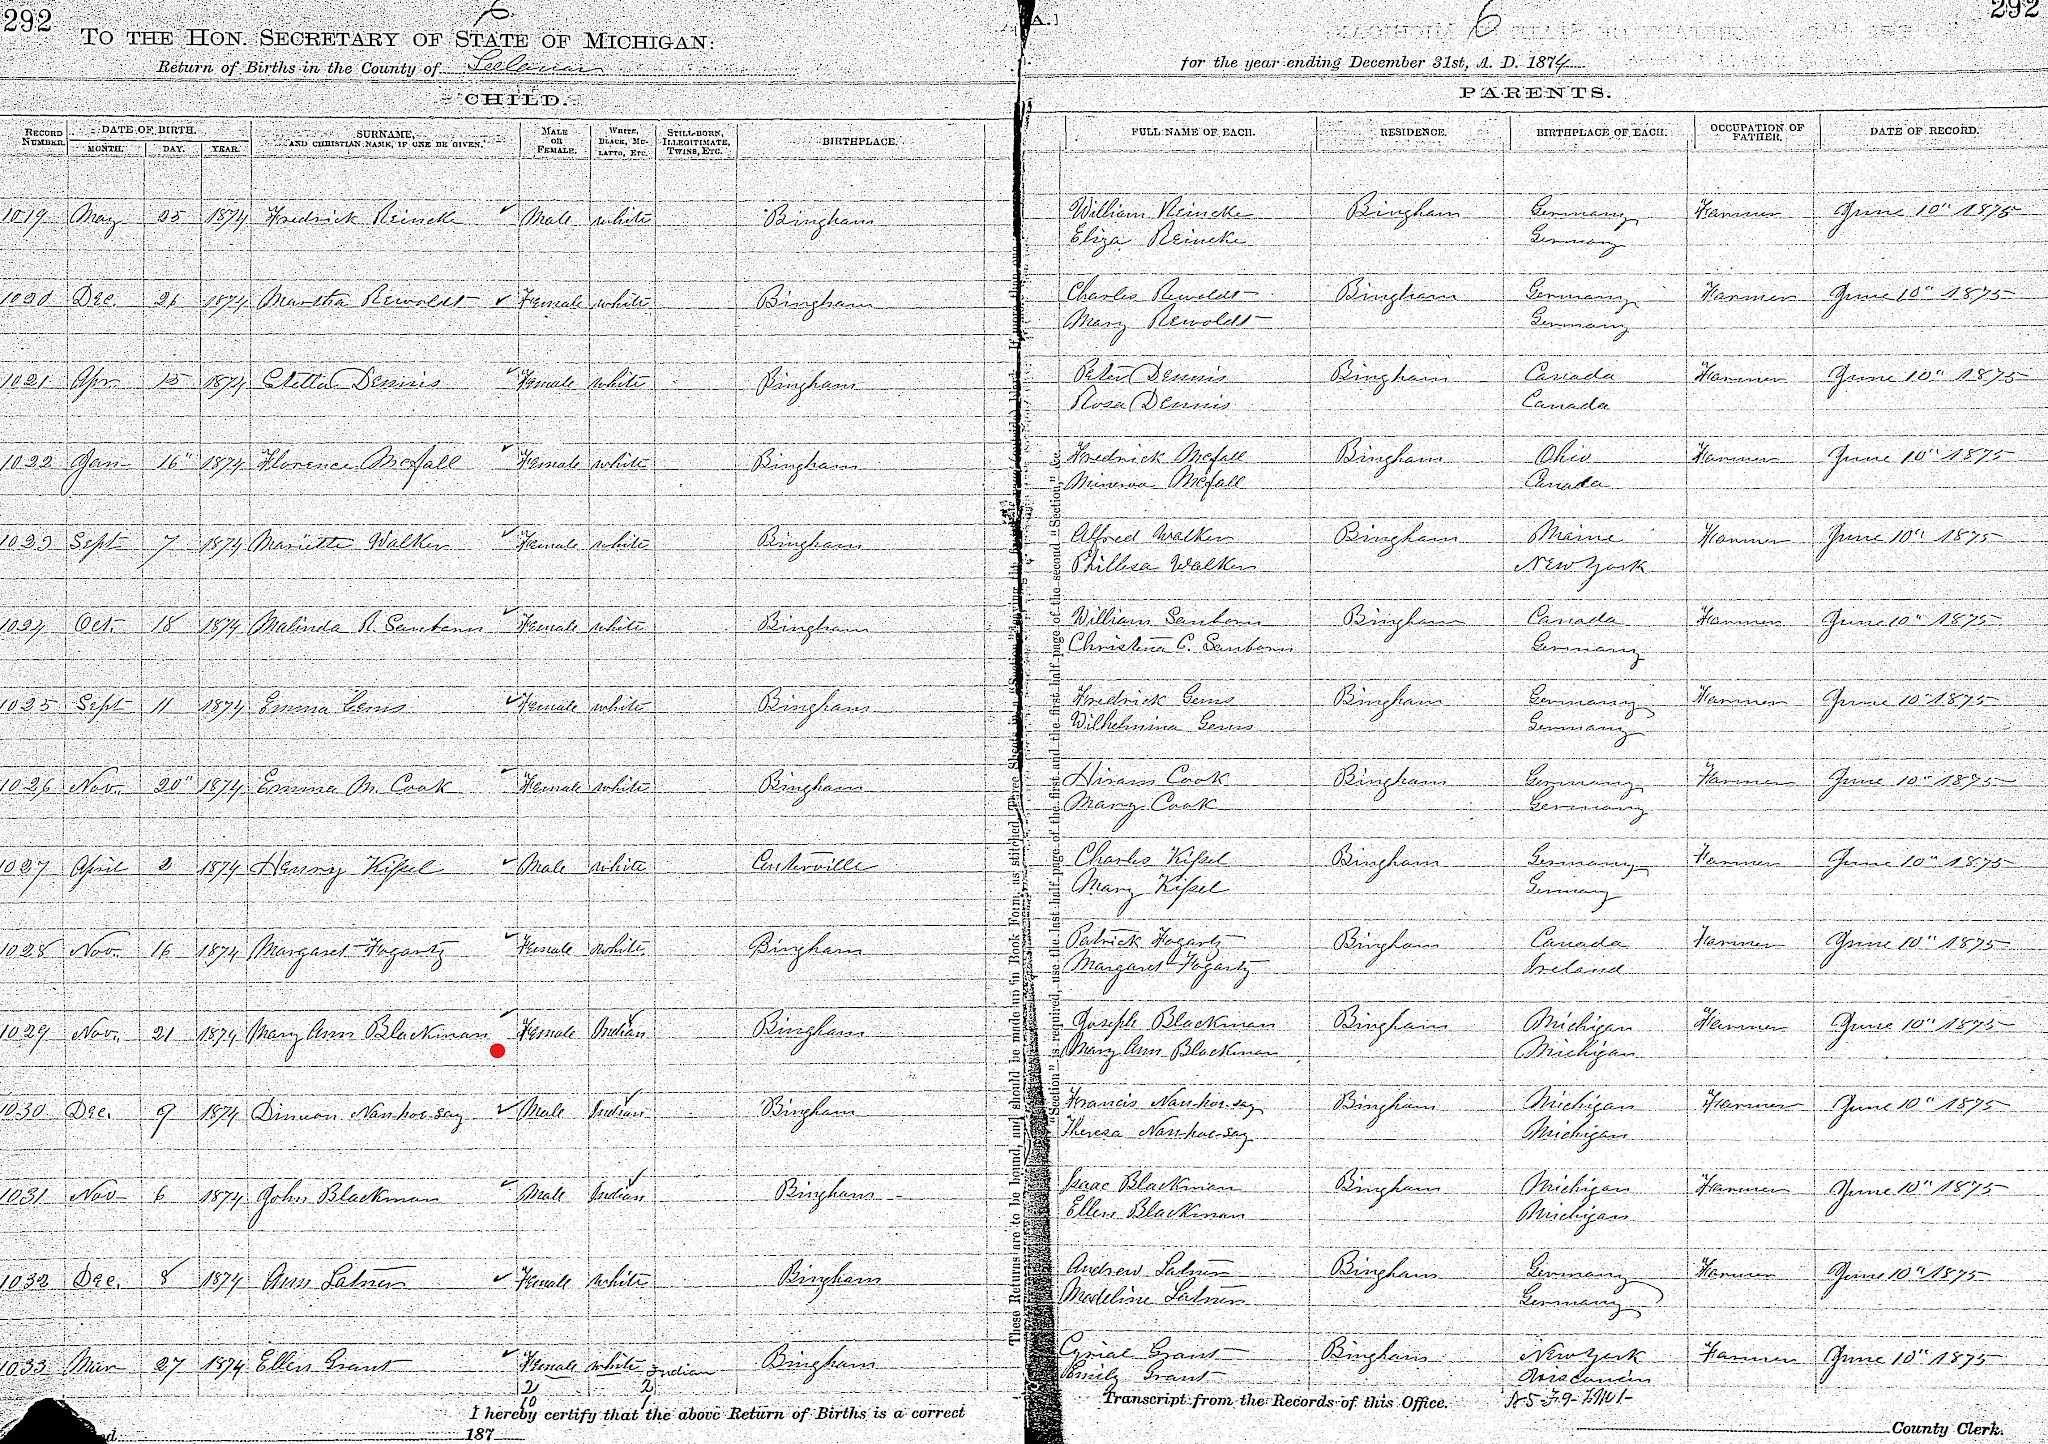 292
6
TO THE HON. SECRETARY OF STATE OF MICHIGAN:
Return of Births in the County of Leelanau
CHILD.
RECORD NUMBER. DATE OF BIRTH. MONTH. DAY. YEAR. SURNAME, AND CHRISTIAN NAME, IF ONE BE GIVEN. MALE OR FEMALE. WHITE, BLACK, MULATTO, ETC. STILL-BORN, ILLEGITIMATE, TWINS, ETC. BIRTHPLACE.
292
6
A.]
for the year ending December 31st, A. D. 1874
PARENTS.
FULL NAME OF EACH. RESIDENCE. BIRTHPLACE OF EACH. OCCUPATION OF FATHER. DATE OF RECORD.
1019 May 25 1874 Fredrick Reincke Male white Bingham William Reincke Bingham Germany Farmer June 10" 1875
Eliza Reincke Germany
1020 Dec. 26 1874 Martha Rewoldt Female white Bingham Charles Rewoldt Bingham Germany Farmer June 10" 1875
Mary Rewoldt Germany
1021 Apr. 15 1874 Dennis Female white Bingham Peter Dennis Bingham Canada Farmer June 10" 1875
Rosa Dennis Canada
1022 Jan 16" 1874 Florence Mcfall Female white Bingham Fredrick Mcfall Bingham Ohio Farmer June 10" 1875
Minerva Mcfall Canada
1023 Sept 7 1874 Mariette Walker Female white Bingham Alfred Walker Bingham Maine Farmer June 10" 1875
Walker New York
1024 Oct. 18 1874 Malinda R. Sanborn Female white Bingham William Sanborn Bingham Canada Farmer June 10" 1875
Christena C. Sanborn Germany
1025 Sept 11 1874 Emma Gems Female white Bingham Fredrick Gems Bingham Germany Farmer June 10" 1875
Wilhelmina Gems Germany
1026 Nov. 20" 1874 Emma M. Cook Female white Bingham Hiram Cook Bingham Germany Farmer June 10" 1875
Mary Cook Germany
1027 April 2 1874 Henry Kissel Male white Centerville Charles Kissel Bingham Germany Farmer June 10" 1875
Mary Kissel Germany
1028 Nov. 16 1874 Margaret Fogarty Female white Bingham Patrick Fogarty Bingham Canada Farmer June 10" 1875
Margaret Fogarty Ireland
1029 Nov. 21 1874 Mary Ann Blackman Female Indian Bingham Joseph Blackman Bingham Michigan Farmer June 10" 1875
Mary Ann Blackman Michigan
1030 Dec. 9 1874 Dimeon Nan-hoe-say Male Indian Bingham Francis Nan-hoe-say Bingham Michigan Farmer June 10" 1875
Theresa Nan-hoe-say Michigan
1031 Nov 6 1874 John Blackman Male Indian Bingham Isaac Blackman Bingham Michigan Farmer June 10" 1875
Ellen Blackman Michigan
1032 Dec. 8 1874 Ann Latner Female white Bingham Andrew Latner Bingham Germany Farmer June 10" 1875
Madeline Latner Germany
1033 Mar 27 1874 Ellen Grant Female white Indian Bingham Cyrial Grant Bingham New York Farmer June 10" 1875
Emily Grant Wisconsin
2 2
10 1
I hereby certify that the above Return of Births is a correct
Transcript from the Records of this Office.
187
County Clerk.
These Returns are to be bound, and should be made up in Book Form, as stitched
"Section" is required, use the last half page of the first and the first half page of the second "Section," &c.